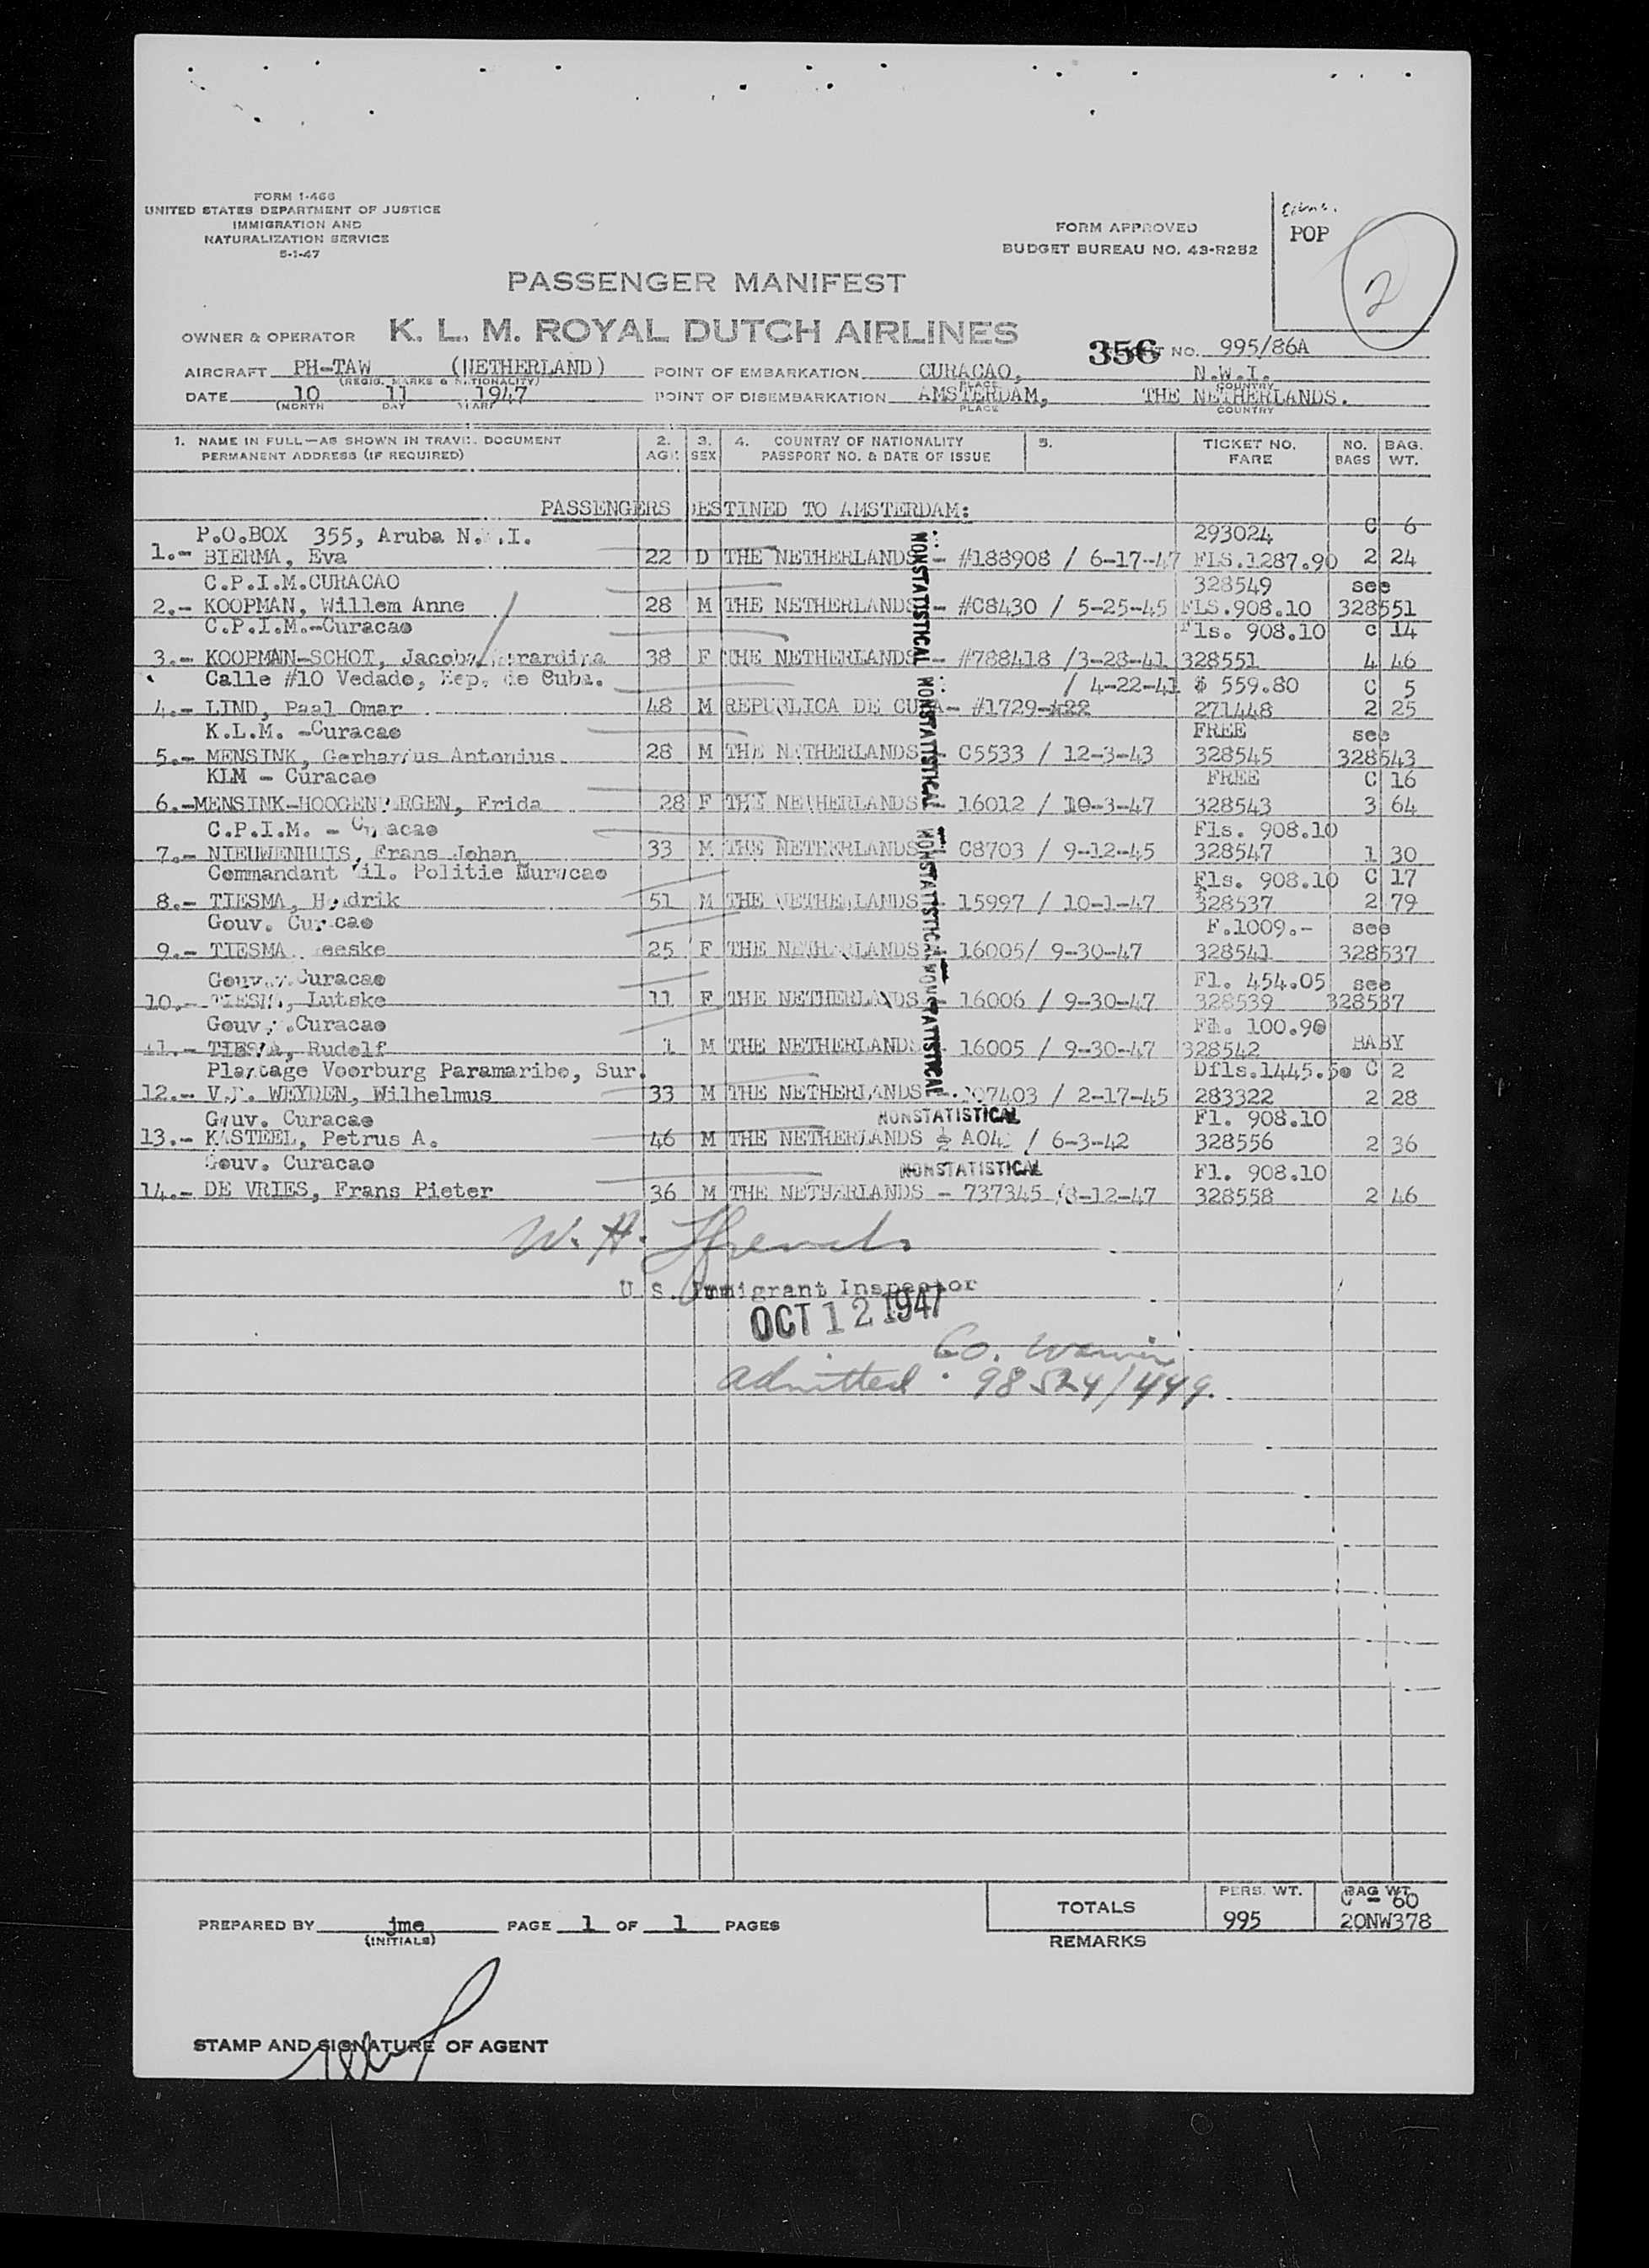 FORM I-466
UNITED STATES DEPARTMENT OF JUSTICE
IMMIGRATION AND
NATURALIZATION SERVICE
5-1-47
FORM APPROVED
BUDGET BUREAU NO. 43-R252
POP
2
PASSENGER MANIFEST
OWNER & OPERATOR K. L. M. ROYAL DUTCH AIRLINES
356 NO. 995/86A
AIRCRAFT PH-TAW (NETHERLAND) POINT OF EMBARKATION CURACAO, N.W.I.
(REGIS. MARKS & NATIONALITY) PLACE COUNTRY
DATE 10 11 1947 POINT OF DISEMBARKATION AMSTERDAM, THE NETHERLANDS.
(MONTH DAY YEAR) PLACE COUNTRY
1. NAME IN FULL—AS SHOWN IN TRAVEL DOCUMENT 2. 3. 4. COUNTRY OF NATIONALITY 5. TICKET NO. NO. BAG.
PERMANENT ADDRESS (IF REQUIRED) AGE SEX PASSPORT NO. & DATE OF ISSUE FARE BAGS WT.
PASSENGERS DESTINED TO AMSTERDAM:
P.O.BOX 355, Aruba N. .I. 293024 C 6
1.- BIERMA, Eva 22 D THE NETHERLANDS - #188908 / 6-17-47 FLS.1287.90 2 24
C.P.I.M.CURACAO 328549 see
2.- KOOPMAN, Willem Anne 28 M THE NETHERLANDS - #C8430 / 5-25-45 FLS.908.10 328551
C.P.I.M.-Curacao Fls. 908.10 C 14
3.- KOOPMAN-SCHOT, Jacoba Gerardina 38 F THE NETHERLANDS - #788418 /3-28-41 328551 4 46
Calle #10 Vedado, Rep. de Cuba. / 4-22-41 $ 559.80 C 5
4.- LIND, Paal Omar 48 M REPUBLICA DE CUBA- #1729- 271448 2 25
K.L.M. -Curacao FREE see
5.- MENSINK, Gerhardus Antonius 28 M THE NETHERLANDS - C5533 / 12-3-43 328545 328543
KLM - Curacao FREE C 16
6.-MENSINK-HOOGENBERGEN, Frida 28 F THE NETHERLANDS - 16012 / 10-3-47 328543 3 64
C.P.I.M. - Curacao Fls. 908.10
7.- NIEUWENHUIS, Frans Johan 33 M THE NETHERLANDS - C8703 / 9-12-45 328547 1 30
Commandant Mil. Politie Curacao Fls. 908.10 C 17
8.- TIESMA, Hendrik 51 M THE NETHERLANDS - 15997 / 10-1-47 328537 2 79
Gouv. Curacao F.1009.- see
9.- TIESMA, 25 F THE NETHERLANDS - 16005/ 9-30-47 328541 328537
Gouv. Curacao Fl. 454.05 see
10.- TIESMA, Lutske 11 F THE NETHERLANDS - 16006 / 9-30-47 328539 328537
Gouv. Curacao Fl. 100.90
11.- TIESMA, Rudolf 1 M THE NETHERLANDS - 16005 / 9-30-47 328542 BABY
Plantage Voorburg Paramaribo, Sur. Dfls.1445.50 C 2
12.- V.D. WEYDEN, Wilhelmus 33 M THE NETHERLANDS 07403 / 2-17-45 283322 2 28
Gouv. Curacao NONSTATISTICAL Fl. 908.10
13.- KASTEEL, Petrus A. 46 M THE NETHERLANDS / 6-3-42 328556 2 36
Gouv. Curacao NONSTATISTICAL Fl. 908.10
14.- DE VRIES, Frans Pieter 36 M THE NETHERLANDS - 737345 /8-12-47 328558 2 46
NONSTATISTICAL
NONSTATISTICAL
NONSTATISTICAL
NONSTATISTICAL
W. H. Ffrench
U.S. Immigrant Inspector
OCT 12 1947
admitted . 98524/449.
TOTALS PERS. WT. BAG WT.
C - 60
995 20NW378
PREPARED BY jme PAGE 1 OF 1 PAGES
(INITIALS)
REMARKS
STAMP AND SIGNATURE OF AGENT